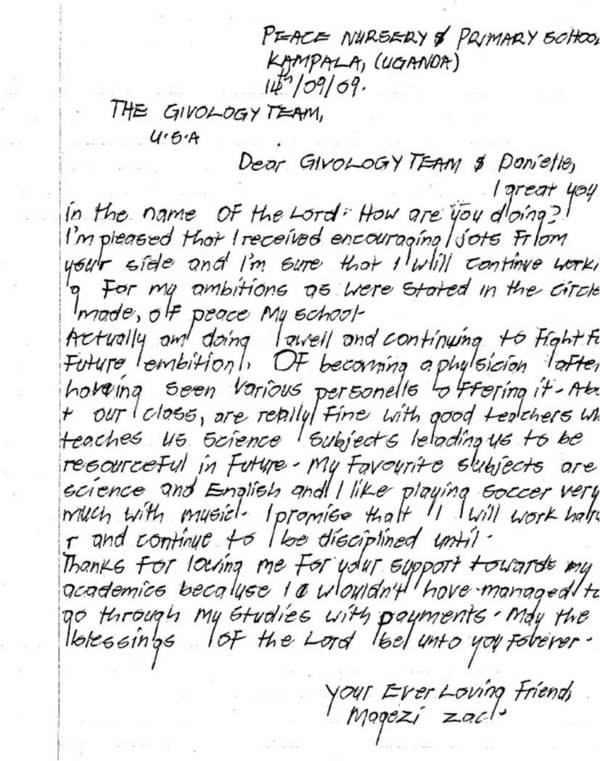 PEACE NURSERY & PRIMARY SCHOOL
KAMPALA, (UGANDA)
14th/09/09.
THE GIVOLOGY TEAM,
U.S.A
Dear GIVOLOGY TEAM & Danielle,
I great you
in the name OF the Lord. How are you doing?
I'm pleased that I received encouraging jots From
your side and I'm sure that I will continue worki
g For my ambitions as were stated in the circle
made, of peace My school.
Actually am doing well and continuing to Fight F
Future embition, OF becoming a physician after
having seen various personells offering it. Abo
t our class, are really Fine with good teachers wh
teaches us science subjects leading us to be
resourceful in Future. My Favourite subjects are
science and English and I like playing soccer very
much with music. I promise that I will work ha
r and continue to be disciplined until.
Thanks For loving me For your support towards my
academics because I wouldn't have managed to
go through My studies with payments. May the
blessings OF the Lord be unto you Forever.
Your Ever Loving Friend,
Magezi Zac.